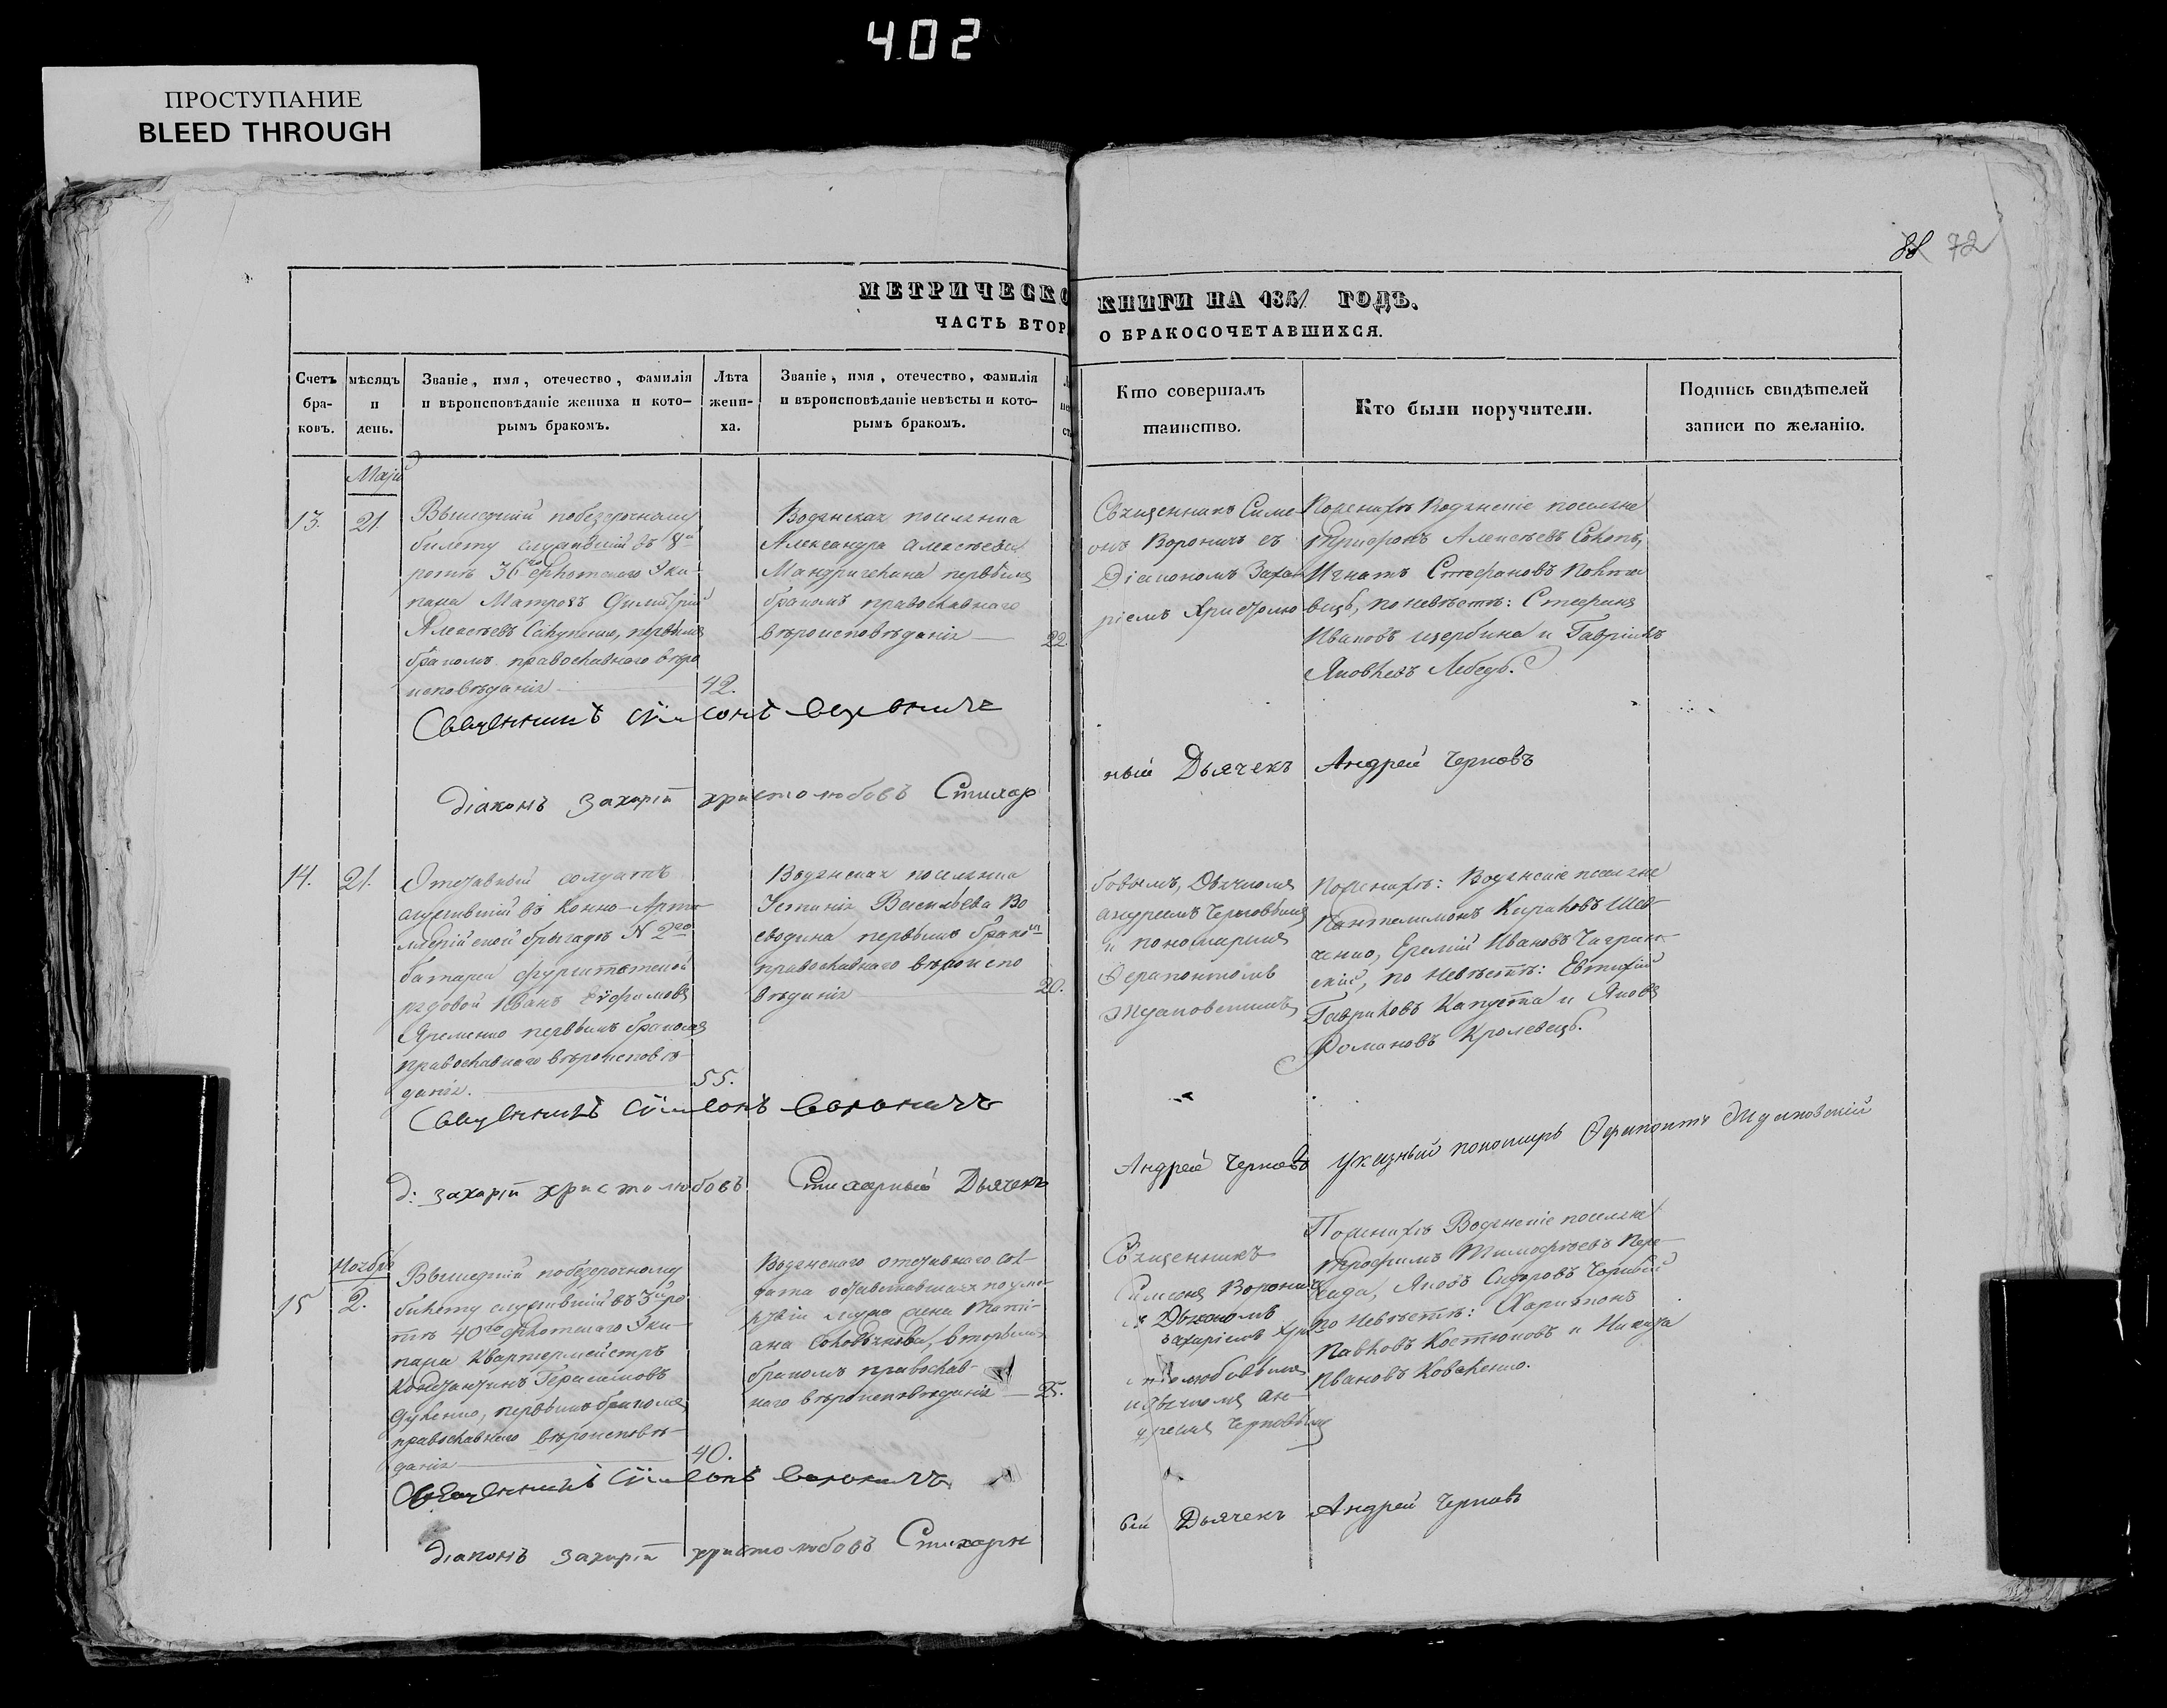 402
ПРОСТУПАНИЕ
BLEED THROUGH
88 72
МЕТРИЧЕСКО КНИГИ НА 1841 ГОДЪ.
ЧАСТЬ ВТОР О БРАКОСОЧЕТАВШИХСЯ.
Счетъ
бра-
ковъ.
мѣсяцъ
и
день.
Званіе, имя, отечество, фамилія
и вѣроисповѣданіе жениха и кото-
рымъ бракомъ.
Лѣта
жени-
ха.
Званіе, имя, отечество, фамилія
и вѣроисповѣданіе невѣсты и кото-
рымъ бракомъ.
Кто совершалъ
таинство.
Кто были поручители.
Подпись свидѣтелей
записи по желанію.
13.
21
Вышедшій побезсрочному
билету служившій въ
ротѣ 36го флотскаго Эки-
пажа Матрозъ Димитрій
Алексѣевъ первымъ
бракомъ православнаго вѣро
исповѣданія
42.
Водянская поселянка
Александра Алексѣева
первымъ
бракомъ православнаго
вѣроисповѣданія
22
Священникъ Симе-
онъ Вороничъ съ
Діакономъ Заха-
ріемъ Христолю
Поженихѣ Водянскіе поселяне
Трифонъ Алексѣевъ
Игнатъ Стефановъ
по невѣстѣ: Стефанъ
Ивановъ Щербина и Гавріилъ
Яковлевъ Лебедь.
Священникъ Сімеонъ Вороничъ
Діаконъ Захарій Христолюбовъ Стихар
ный Дьячекъ Андрей Черновъ
14.
21.
Отставный солдатъ
служившій въ Конно-Арти
лерійской бригадѣ N 2го
батареи фурштатской
рядовой Иванъ Еѵфимовъ
Яременко первымъ бракомъ
православнаго вѣроисповѣ-
данія.
55.
Водянская поселянка
Устинія Васильева Во
еводина первымъ бракомъ
православнаго вѣроиспо
вѣданія
20.
бовымъ, Дьячкомъ
Андреемъ Черновымъ
и пономаремъ
Ѳерапонтомъ
Поженихѣ: Водянскіе поселяне
Пантелимонъ Кириловъ Шев-
ченко, Еремій Ивановъ Чигрин-
скій, по невѣстѣ: Евтихій
Гавриловъ Капуста и Яковъ
Романовъ Кролевецъ.
Священникъ Сімеонъ Вороничъ
Д: Захарій Христолюбовъ Стихарный Дьячекъ
Андрей Черновъ указный пономарь Ѳерапонтъ
Ноября
15
2.
Вышедшій побезсрочному
билету служившій въ 3й ро
тѣ 40го флотскаго Эки-
пажа Квартермейстръ
Константинъ Герасимовъ
первымъ бракомъ
православнаго вѣроисповѣ-
данія
40.
Водянскаго отставнаго сол-
дата оставшаяся по
мужа жена Тати-
ана вторымъ
бракомъ православ-
наго вѣроисповѣданія
25.
Священникъ
Симеонъ Вороничъ
съ Діакономъ
Захаріемъ Хри
столюбовымъ
и дьячкомъ Ан-
дреемъ Черновымъ
Поженихѣ Водянскіе поселяне
Трофимъ Тимофѣевъ
Яковъ Сидоровъ Чорный
по невѣстѣ: Харитонъ
Павловъ Костюковъ и Никита
Ивановъ Коваленко.
Священникъ Сімеонъ Вороничъ
Діаконъ Захарій Христолюбовъ Стихарн
бій Дьячекъ Андрей Черновъ